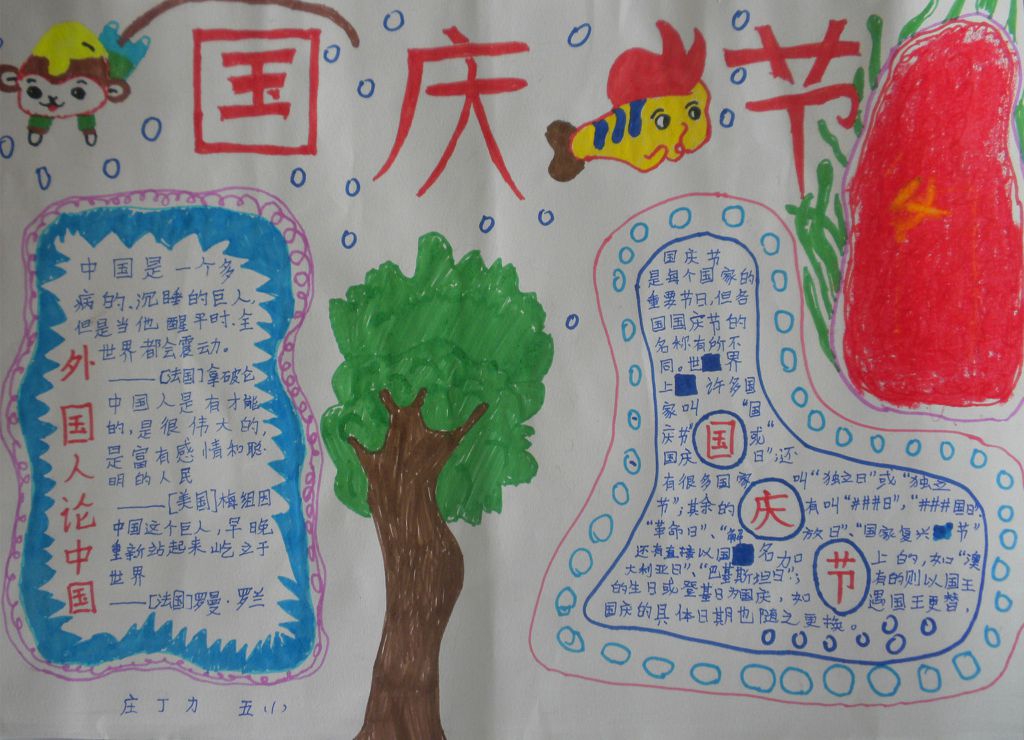 国庆节
中国是一个多
病的、沉睡的巨人,
但是当他醒平时.全
世界都会震动。
——[法国]拿破仑
中国人是有才能
的,是很伟大的,
是富有感情和聪
明的人民
——[美国]梅组因
中国这个巨人,早晚
重新站起来屹立于
世界
——[法国]罗曼·罗兰
外国人论中国
国庆节
是每个国家的
重要节日,但各
国国庆节的
名称有所不
同。世界
上许多国
家叫“国
庆节”或“
国庆日”;还
有很多国家叫“独立日”或“独立
节”;其余的有叫“###日”,“###国日”
“革命日”、“解放日”、“国家复兴节”
还有直接以国名加上的,如“澳
大利亚日”、“巴基斯坦日”;有的则以国王
的生日或登基日为国庆,如遇国王更替,
国庆的具体日期也随之更换。
国
庆
节
庄丁力 五(1)